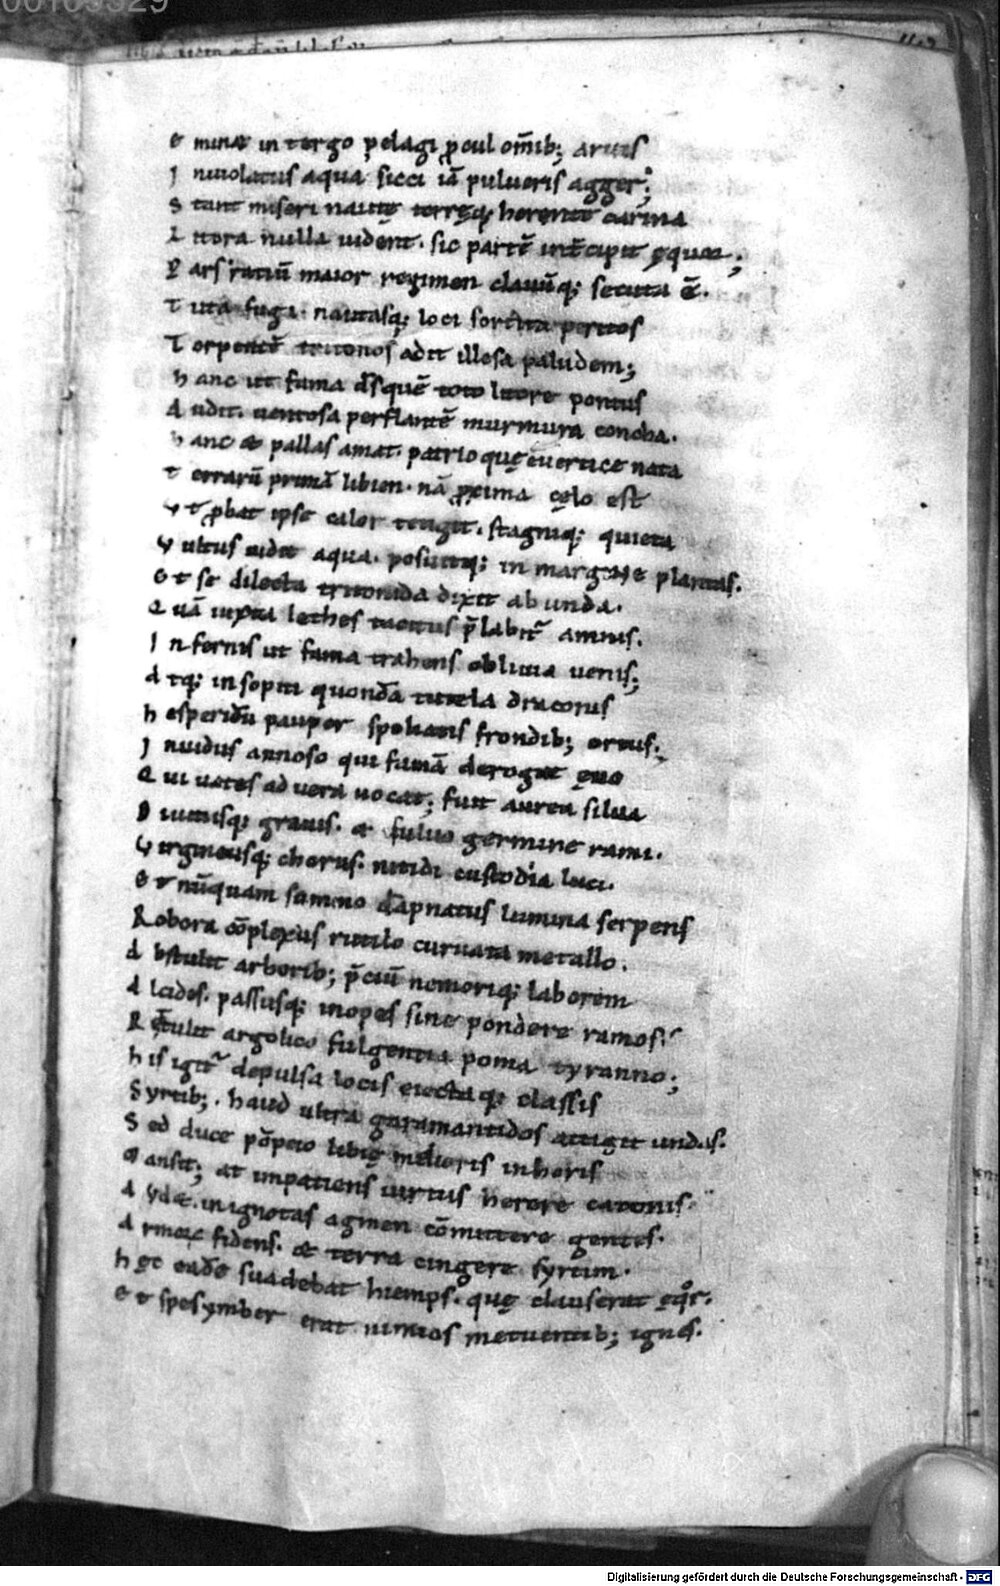 00109329
E minet in tergo pelagi ꝓcul om̄ib; aruis
I nuiolatus aqua sicci iā pulueris agger;
S tant miseri nautę terręq; herente carina
L itora nulla uident. sic partē int̄cipit ęquor;
P ars ratiū maior regimen clauūq; secuta ē.
T uta fuga. nautasq; loci sortita peritos
T orpentē tritonos adit illesa paludem;
h anc ut fama dſ quē toto litore pontus
A udit. uentosa perflantē murmura concha.
h anc et pallas amat. patrio quę euertice nata
t errarū primā libien. nā ꝓxima cęlo est
V t ꝓbat ipse calor tetigit. stagniq; quieta
V ultus uidit aqua. posuitq; in margine plantas.
E t se dilecta tritonida dixit ab unda.
Q uā iuxta lethes tacitus p̄labit̄ amnis.
I nfernis ut fama trahens obliuia uenis;
A tq; insopiti quondā tutela draconis
h esperidū pauper spoliatis frondib; ortus;
I nuidus annoso qui famā derogat ęuo
Q ui uates ad uera uocat; fuit aurea silua
D iuitiisq; grauis. et fuluo germine rami.
V irgineusq; chorus. nitidi custodia luci.
E t nūquam somno dāpnatus lumina serpens
R obora cōplexus rutilo curuata metallo.
A bstulit arborib; p̄ciū nemoriq; laborem
A lcides. passusq; inopes sine pondere ramos.
R etulit argolico fulgentia poma tyranno;
h is igit̄ depulsa locis eiectaq; classis
S yrtib;. haud ultra garamantidos attigit undas.
S ed duce pōpeio libię melioris inhoris
M ansit; at impatiens uirtus herere catonis.
A udet. in ignotas agmen cōmittere gentes.
A rmis fidens. et terra cingere syrtim.
h ęc eadē suadebat hiemps. quę clauserat ęqr̄.
E t spes ymber erat nimios metuentib; ignes.
Digitalisierung gefördert durch die Deutsche Forschungsgemeinschaft - DFG